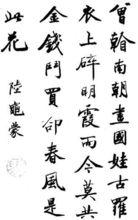 曾看南朝畫國娃古羅
衣上碎明霞而今莫共
金錢鬥買卻春風是
此花 陸龜蒙